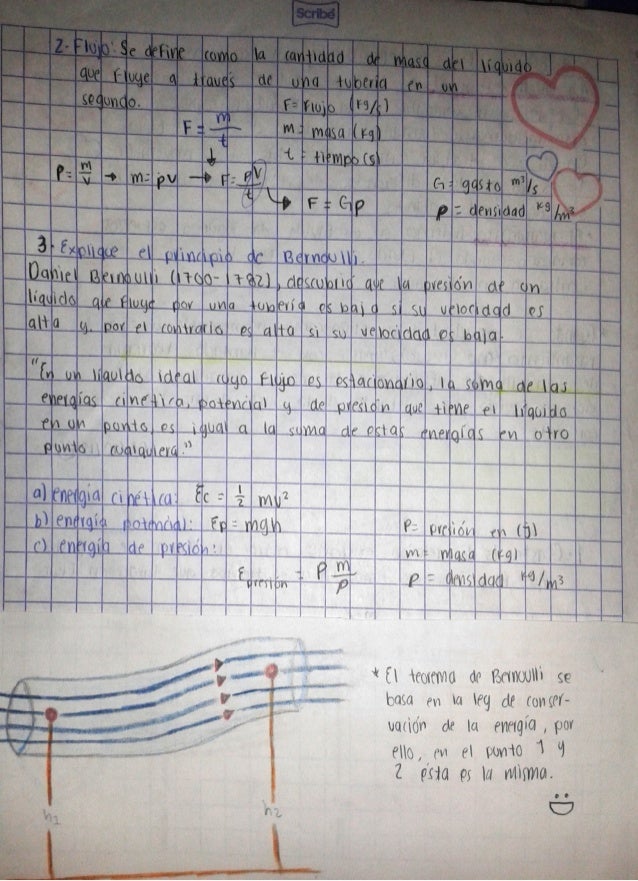 Scribé
2.- Flujo: Se define como la cantidad de masa del líquido
que fluye a través de una tubería en un
segundo.
F = flujo (kg/s)
F = m/t
m = masa (kg)
t = tiempo (s)
P = m/v → m = pv → F = pV/t
→ F = Gp
G = gasto m³/s
p = densidad kg/m³
3.- Explique el principio de Bernoulli.
Daniel Bernoulli (1700-1782), descubrió que la presión de un
líquido que fluye por una tubería es baja si su velocidad es
alta y, por el contrario, es alta si su velocidad es baja.
"En un líquido ideal cuyo flujo es estacionario, la suma de las
energías cinética, potencial y de presión que tiene el líquido
en un punto, es igual a la suma de estas energías en otro
punto cualquiera."
a) energía cinética: Ec = 1/2 mv²
b) energía potencial: Ep = mgh
c) energía de presión:
E presión = P m/p
P = preción en (j)
m = masa (kg)
p = densidad kg/m³
* El teorema de Bernoulli se
basa en la ley de conser-
vación de la energía, por
ello, en el punto 1 y
2 ésta es la misma.
h1
h2